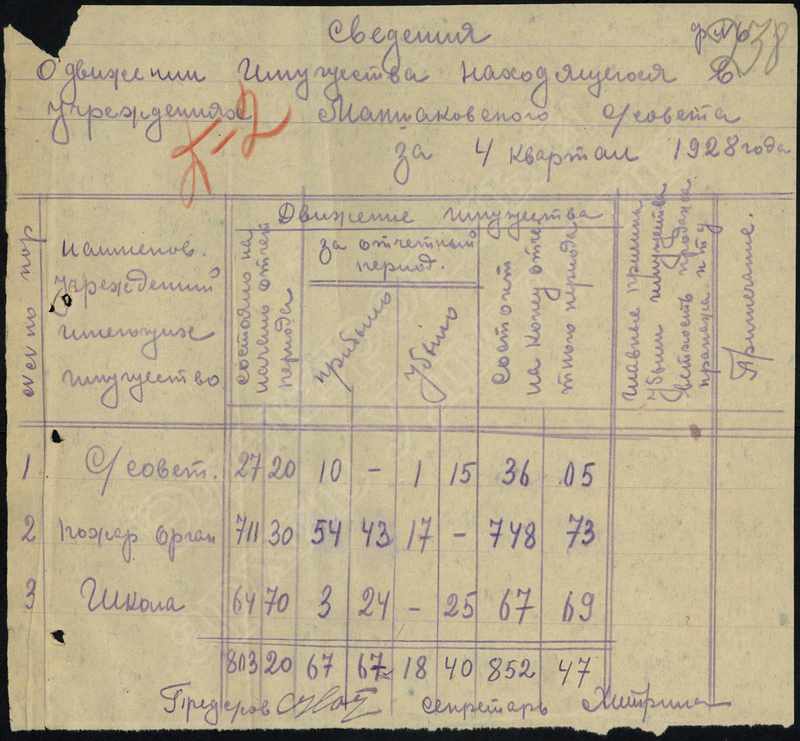 Сведения ф №6
138
О движении Имущества находящегося в
учреждениях с/совета
за 4 квартал 1928 года
№№ по пор
наименов. учреждений имеющих имущество
Движение имущества
за отчетный период.
состояло на начало отчет периода
прибыло
убыло
состоит на конец отчетного периода
Главные причины убыли имущества
Примечание.
1 С/совет. 27 20 10 - 1 15 36 05
2 пожар орган 711 30 54 43 17 - 748 73
3 Школа 64 70 3 24 - 25 67 69
803 20 67 67 18 40 852 47
секретарь